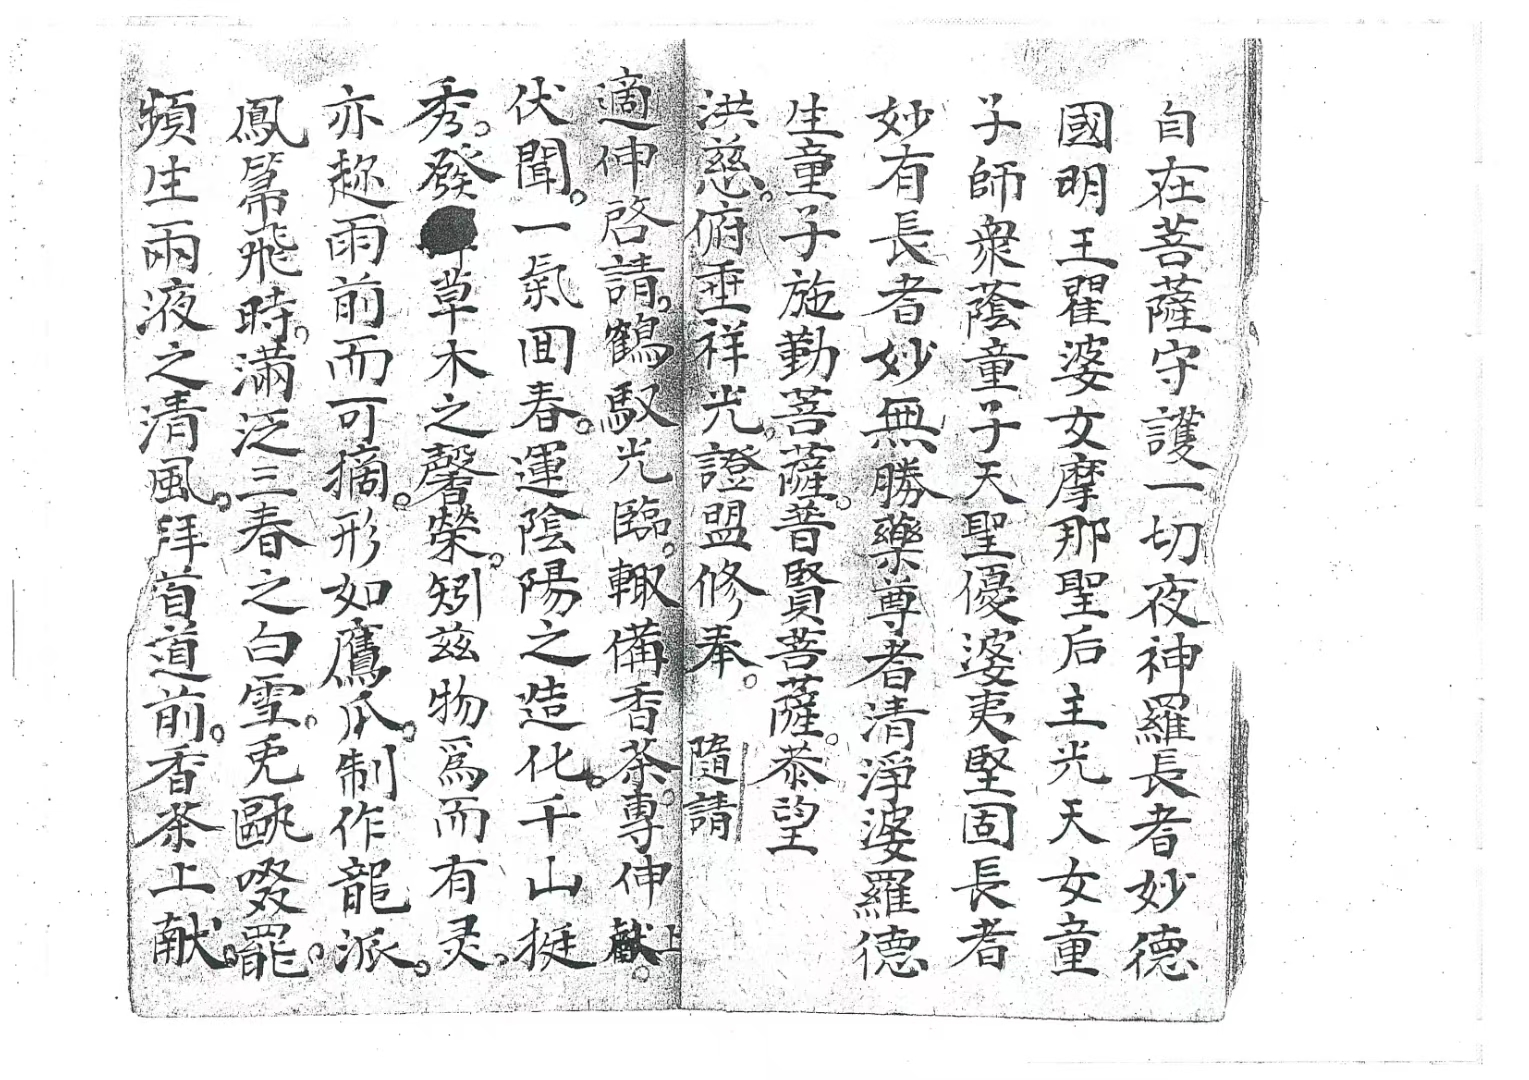 自在菩薩守護一切夜神羅長者妙德
國明王瞿婆女摩那聖后主光天女童
子師衆蔭童子天聖優婆夷堅固長者
妙有長者妙無勝藥尊者清淨婆羅德
生童子施勤菩薩。普賢菩薩。恭望
洪慈。俯垂祥光。證盟修奉。 隨請
適伸啓請。鶴馭光臨。輙備香茶。專伸上獻。
伏聞。一氣囬春。運陰陽之造化。千山挺
秀。發草木之馨榮。矧兹物爲而有灵。
亦趂雨前而可摘。形如鷹爪。制作龍派。
鳳篇飛時。滿泛三春之白雪。兎甌啜罷。
頻生兩液之清風。拜首道前。香茶上献。